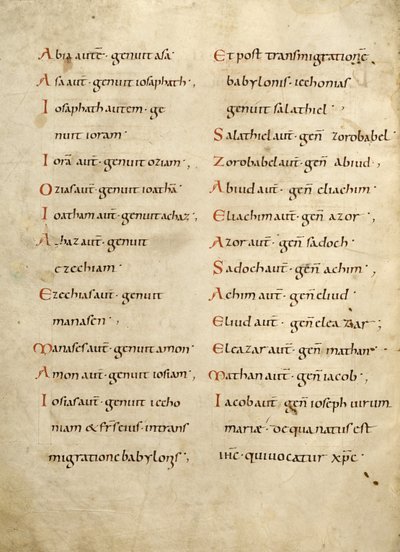 Abia autē · genuit asa
Asa aut̄ · genuit iosaphath ,
Iosaphath autem · ge
nuit ioram ·
Iorā aut̄ · genuit oziam ,
Ozias aut̄ · genuit ioathā
Ioatham aut̄ · genuit achaz ,
Achaz aut̄ · genuit
ezechiam ·
Ezechias aut̄ · genuit
manasen ,
Manases aut̄ · genuit amon
Amon aut̄ · genuit iosiam ,
Iosias aut̄ · genuit iecho
niam & fr̄s eius · in trans
migratione babylonis ,
Et post transmigrationē
babylonis · iechonias
genuit salathiel ·
Salathiel aut̄ · geñ zorobabel
Zorobabel aut̄ · geñ abiud ,
Abiud aut̄ · geñ eliachim
Eliachim aut̄ · geñ azor ,
Azor aut̄ · geñ sadoch
Sadoch aut̄ · geñ achim ,
Achim aut̄ · geñ eliud ·
Eliud aut̄ · geñ eleazar ;
Eleazar aut̄ · geñ mathan
Mathan aut̄ · geñ iacob ,
Iacob aut̄ · geñ ioseph uirum
mariæ · de qua natus est
ih̄c · qui uocatur xp̄c ·